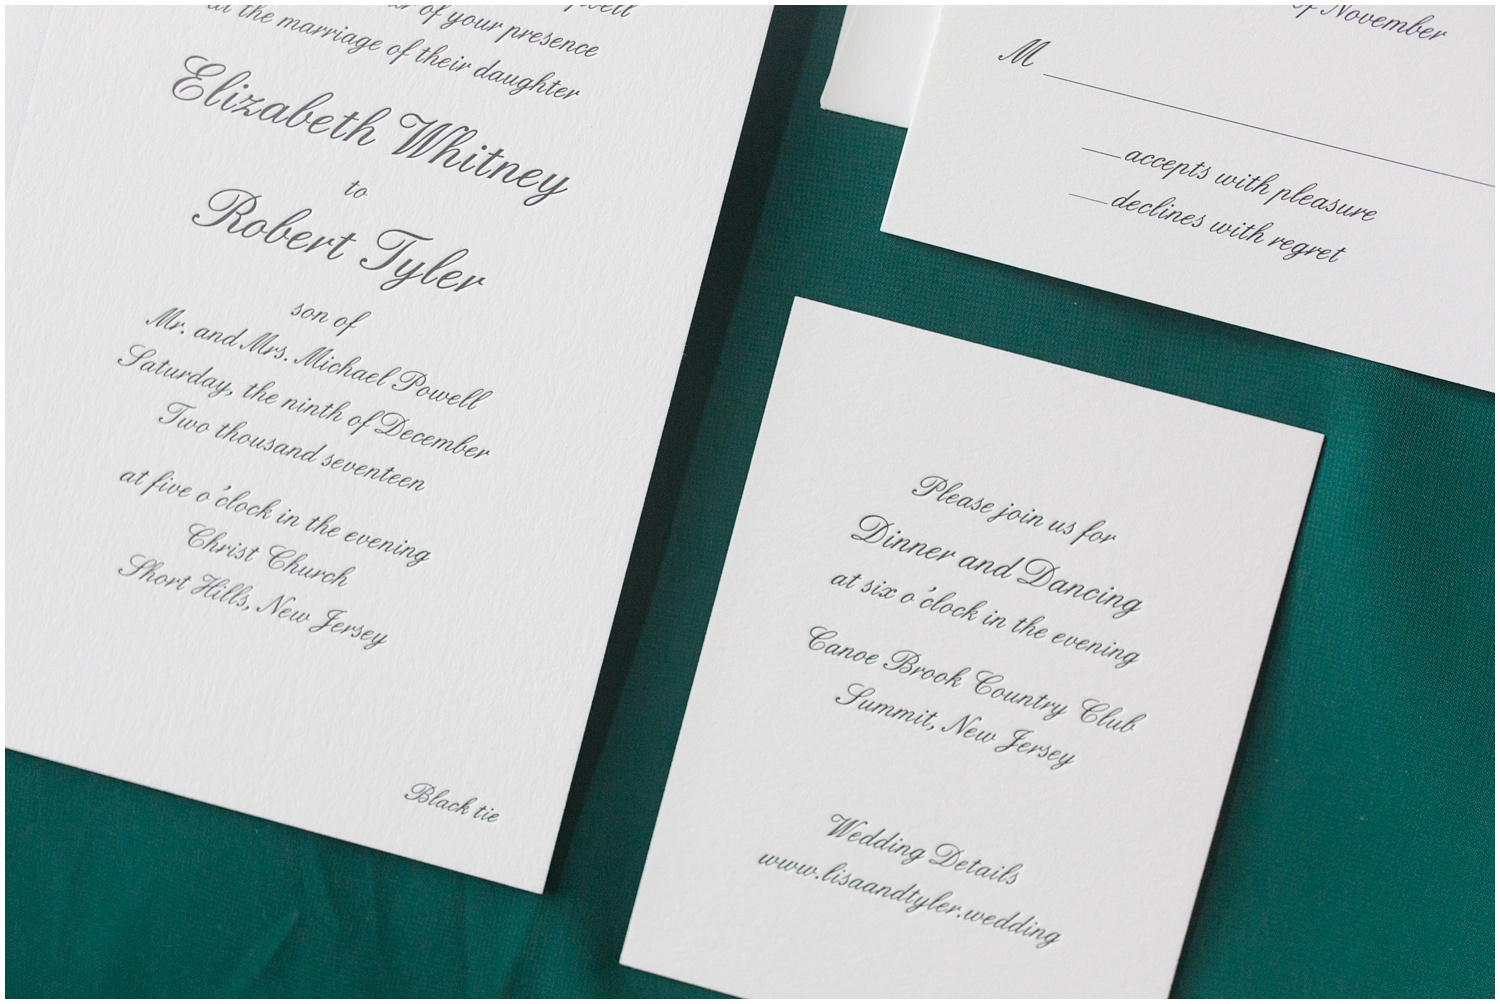 of your presence
at the marriage of their daughter
Elizabeth Whitney
to
Robert Tyler
son of
Mr. and Mrs. Michael Powell
Saturday, the ninth of December
Two thousand seventeen
at five o'clock in the evening
Christ Church
Short Hills, New Jersey
Black tie
of November
M
accepts with pleasure
declines with regret
Please join us for
Dinner and Dancing
at six o'clock in the evening
Canoe Brook Country Club
Summit, New Jersey
Wedding Details
www.lisaandtyler.wedding